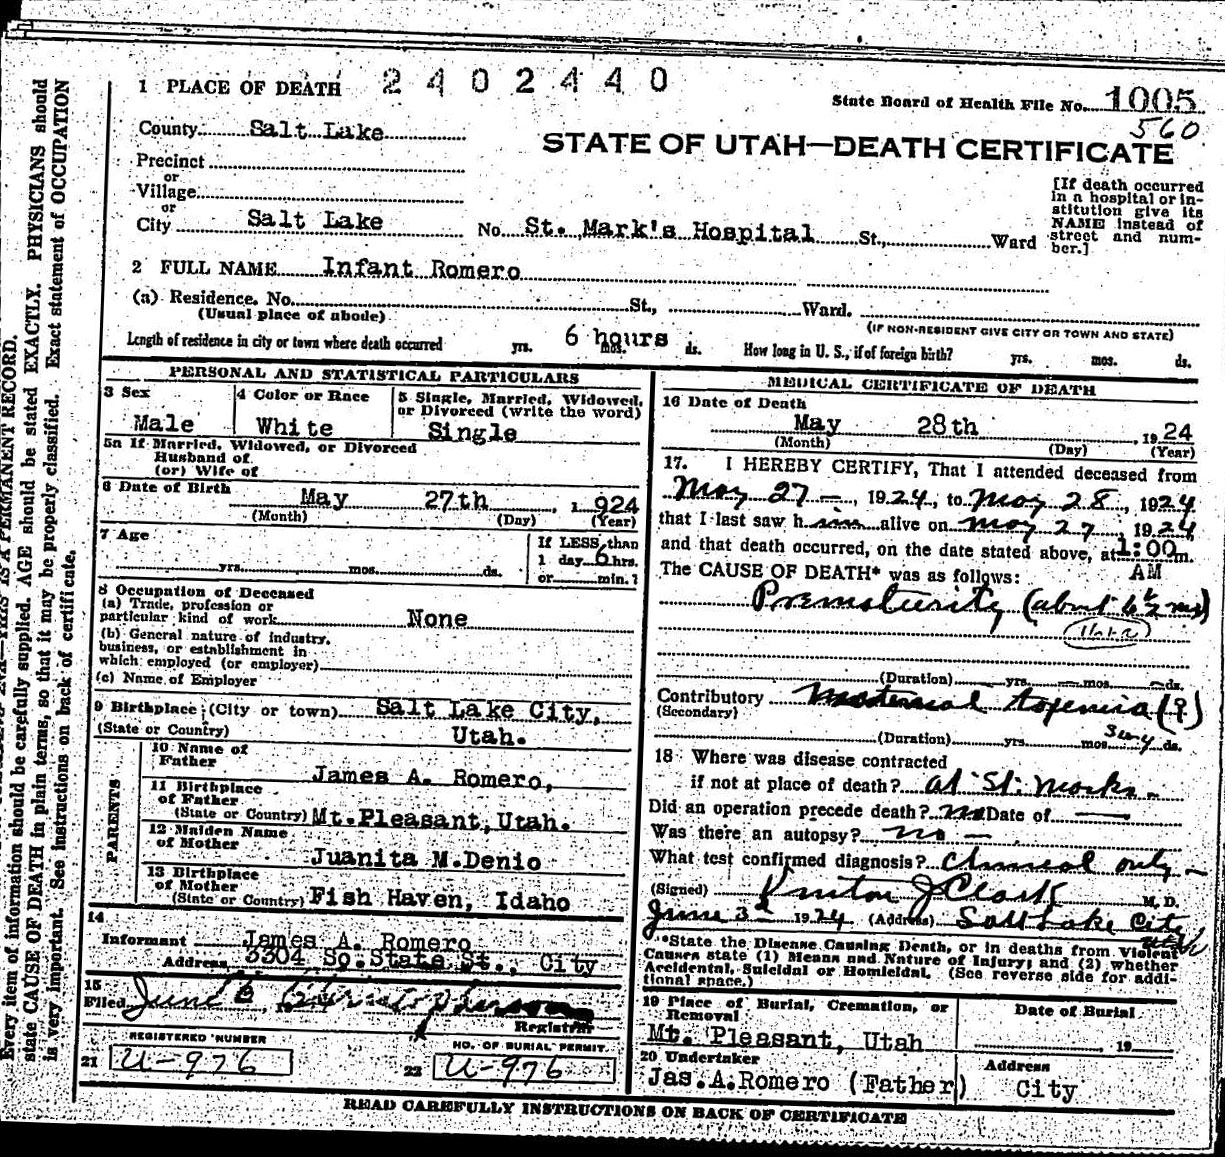 1 PLACE OF DEATH 2402440
State Board of Health File No. 1005
560
County Salt Lake
STATE OF UTAH—DEATH CERTIFICATE
Precinct
or
Village
or
City Salt Lake No. St. Mark's Hospital St., Ward
[If death occurred
in a hospital or in-
stitution give its
NAME instead of
street and num-
ber.]
2 FULL NAME Infant Romero
(a) Residence. No. St., Ward.
(Usual place of abode)
(IF NON-RESIDENT GIVE CITY OR TOWN AND STATE)
Length of residence in city or town where death occurred yrs. 6 hours mos. ds. How long in U. S., if of foreign birth? yrs. mos. ds.
PERSONAL AND STATISTICAL PARTICULARS
3 Sex
Male
4 Color or Race
White
5 Single, Married, Widowed,
or Divorced (write the word)
Single
5a If Married, Widowed, or Divorced
Husband of
(or) Wife of
6 Date of Birth
May 27th, 1924
(Month) (Day) (Year)
7 Age
yrs. mos. ds.
If LESS than
1 day 6 hrs.
or min.?
8 Occupation of Deceased
(a) Trade, profession or
particular kind of work None
(b) General nature of industry,
business, or establishment in
which employed (or employer)
(c) Name of Employer
9 Birthplace (City or town) Salt Lake City,
(State or Country) Utah.
PARENTS
10 Name of
Father James A. Romero,
11 Birthplace
of Father
(State or Country) Mt.Pleasant, Utah.
12 Maiden Name
of Mother Juanita M.Denio
13 Birthplace
of Mother
(State or Country) Fish Haven, Idaho
14
Informant James A. Romero
Address 3304 So.State St., City
15
Filed June 6
Registrar
REGISTERED NUMBER
21 U-976
NO. OF BURIAL PERMIT.
22 U-976
MEDICAL CERTIFICATE OF DEATH
16 Date of Death
May 28th, 1924
(Month) (Day) (Year)
17. I HEREBY CERTIFY, That I attended deceased from
May 27 —, 1924, to May 28, 1924
that I last saw h im alive on May 27, 1924
and that death occurred, on the date stated above, at 1:00 m.
AM
The CAUSE OF DEATH* was as follows:
Prematurity (about 6½ ms)
(Duration) yrs. mos. ds.
Contributory Maternal toxemia (?)
(Secondary)
(Duration) yrs. mos. ds.
18 Where was disease contracted
if not at place of death? at St. Marks —
Did an operation precede death? no Date of —
Was there an autopsy? no —
What test confirmed diagnosis? Clinical only —
(Signed) J Clark M. D.
June 3 - 1924 (Address) Salt Lake City
Utah
*State the Disease Causing Death, or in deaths from Violent
Causes state (1) Means and Nature of Injury; and (2) whether
Accidental, Suicidal or Homicidal. (See reverse side for addi-
tional space.)
19 Place of Burial, Cremation, or
Removal
Mt. Pleasant, Utah
Date of Burial
19
20 Undertaker
Jas.A.Romero (Father)
Address
City
READ CAREFULLY INSTRUCTIONS ON BACK OF CERTIFICATE
Every item of information should be carefully supplied. AGE should be stated EXACTLY. PHYSICIANS should
state CAUSE OF DEATH in plain terms, so that it may be properly classified. Exact statement of OCCUPATION
is very important. See instructions on back of certificate.
THIS IS A PERMANENT RECORD.